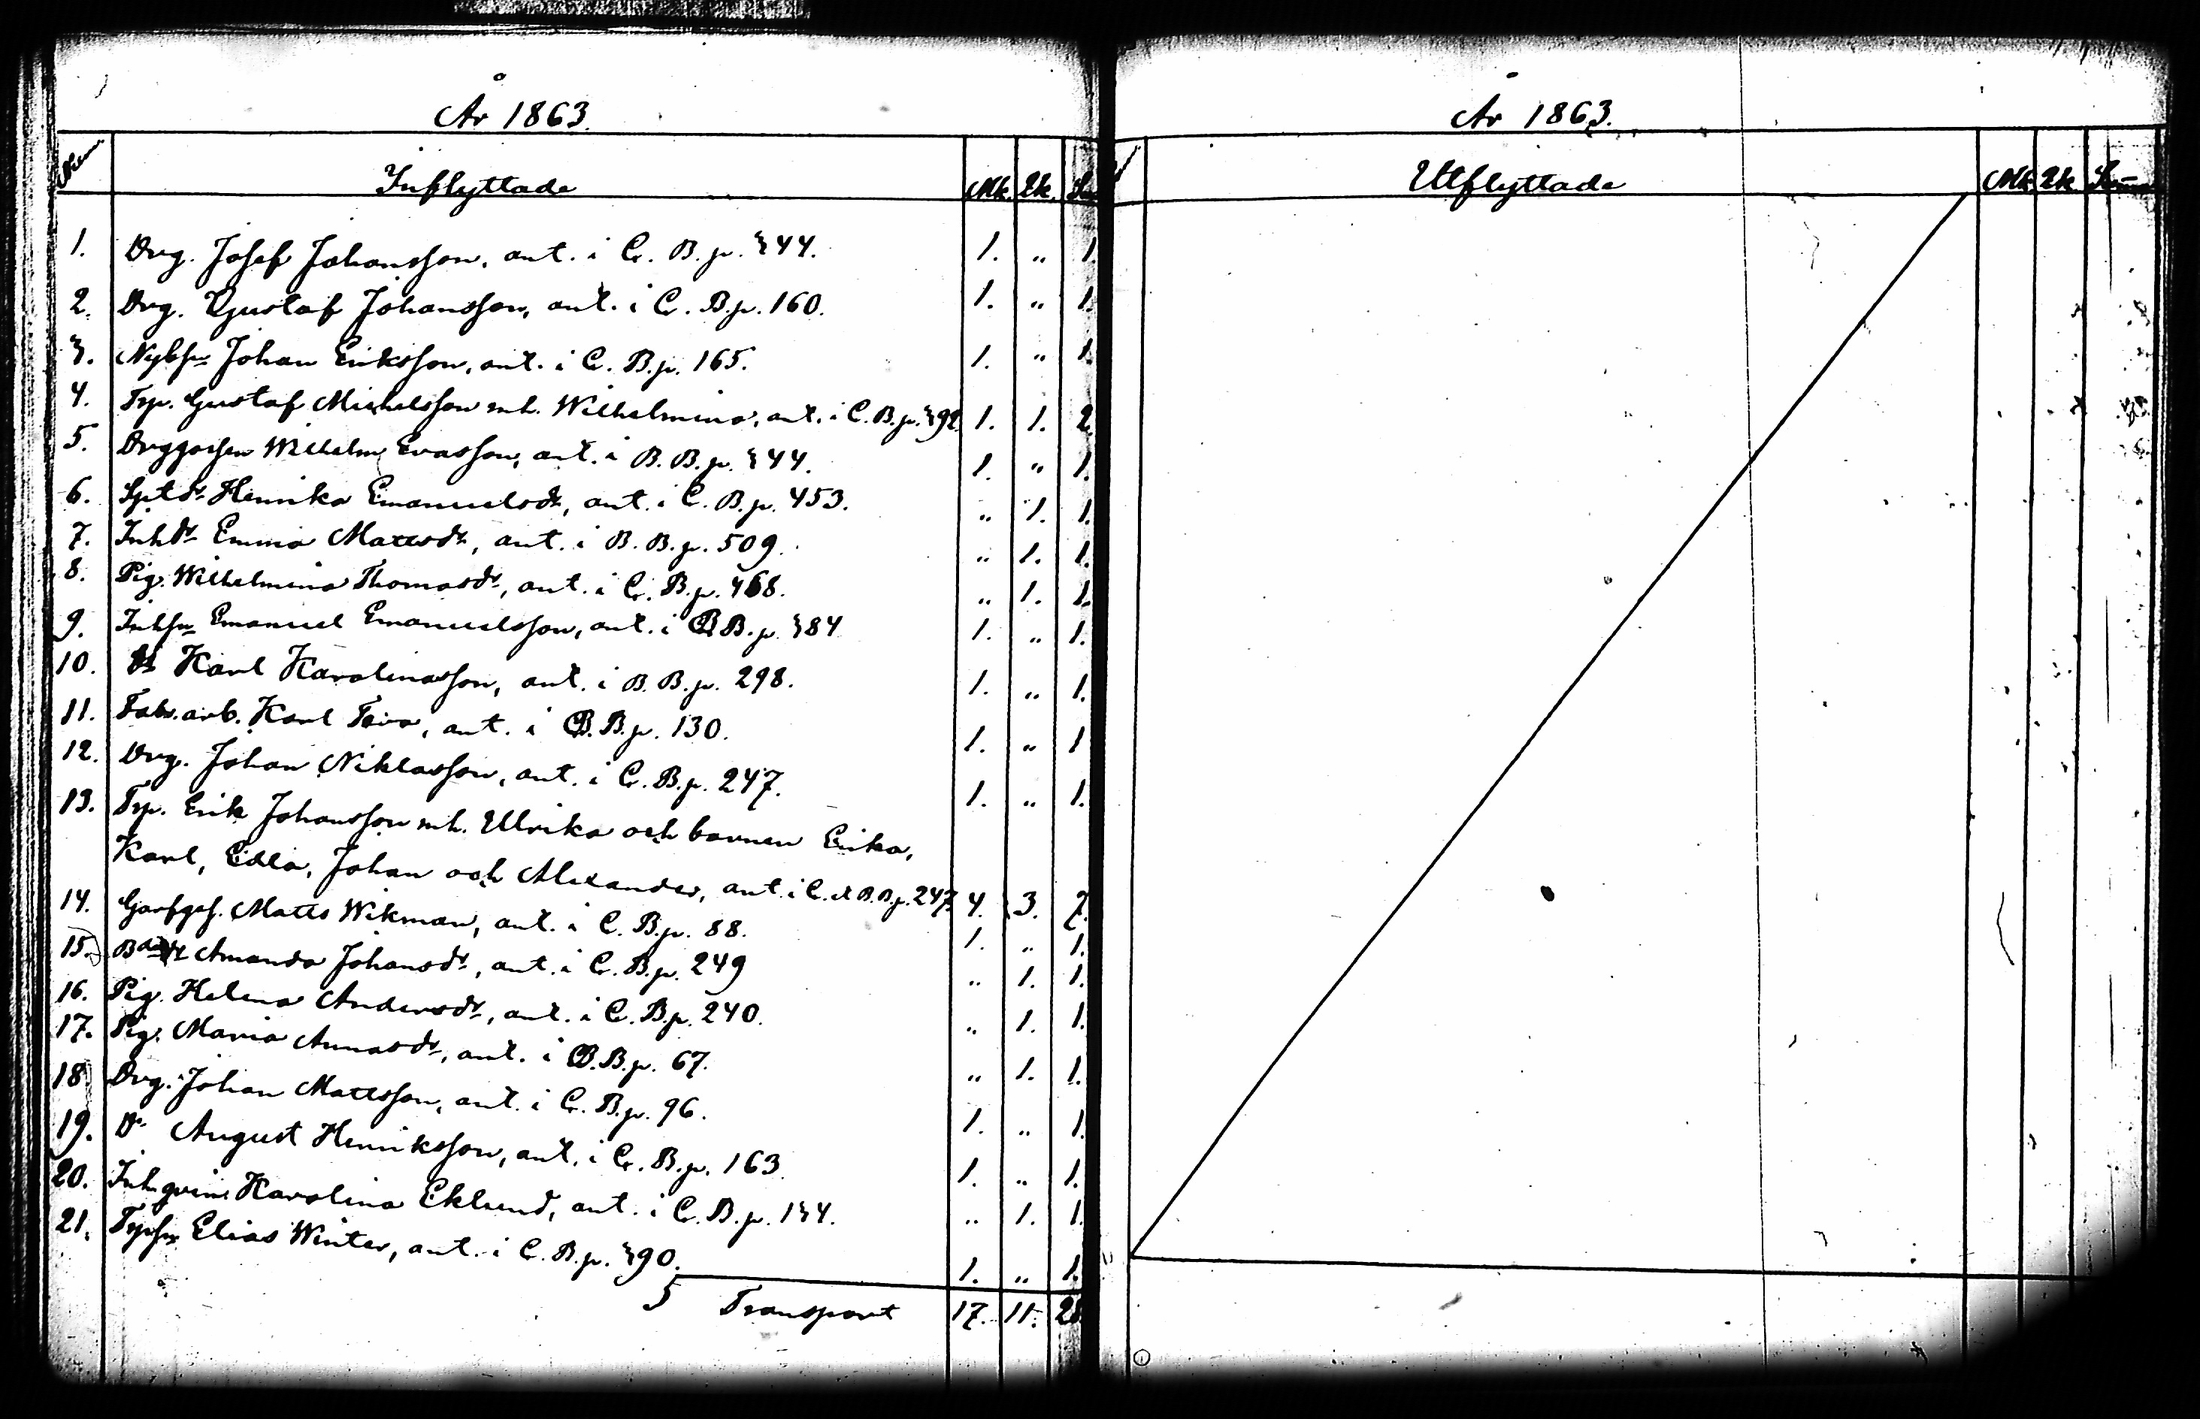 År 1863.
Num Inflyttade Mk. Qk. Sum
1. Drg. Josef Johansson, ant. i C. B. p. 344. 1. „ 1.
2. Drg. Gustaf Johansson, ant. i C. B. p. 160. 1. „ 1.
3. Nybsn Johan Eriksson, ant. i C. B. p. 165. 1. „ 1.
4. Trp. Gustaf Michelsson mh. Wilhelmina, ant. i C. B. p. 392 1. 1. 2.
5. Drggossen Wilhelm Evasson, ant. i B. B. p. 344. 1. „ 1.
6. Sptdr Henrika Emanuelsdr, ant. i C. B. p. 453. „ 1. 1.
7. Inhdr Emma Mattsdr, ant. i B. B. p. 509. „ 1. 1.
8. Pig. Wilhelmina Thomasdr, ant. i C. B. p. 468. „ 1. 1.
9. Inhsn Emanuel Emanuelsson, ant. i B. B. p. 384 1. „ 1.
10. Dr Karl Karolinasson, ant. i B. B. p. 298. 1. „ 1.
11. Fabr. arb. Karl Toivo, ant. i B. B. p. 130. 1. „ 1
12. Drg. Johan Niklasson, ant. i C. B. p. 247. 1. „ 1.
13. Trp. Erik Johansson mh. Ulrika och barnen Erika,
Karl, Edla, Johan och Alexander, ant. i C. et B. B. p. 247. 4. 3. 7.
14. Garfges. Matts Wikman, ant. i C. B. p. 88. 1. „ 1.
15. Bdr Amanda Johansdr, ant. i C. B. p. 249 „ 1. 1.
16. Pig. Helena Andersdr, ant. i C. B. p. 240. „ 1. 1.
17. Pig. Maria Annasdr, ant. i B. B. p. 67. „ 1. 1.
18. Drg. Johan Mattsson, ant. i C. B. p. 96. 1. „ 1.
19. Dr August Henriksson, ant. i C. B. p. 163 1. „ 1.
20. Inhqvin. Karolina Eklund, ant. i C. B. p. 134. „ 1. 1.
21. Trpsn Elias Winter, ant. i C. B. p. 390. 1. „ 1.
Transport 17. 11. 28
År 1863.
Utflyttade Mk. Qk. Summa